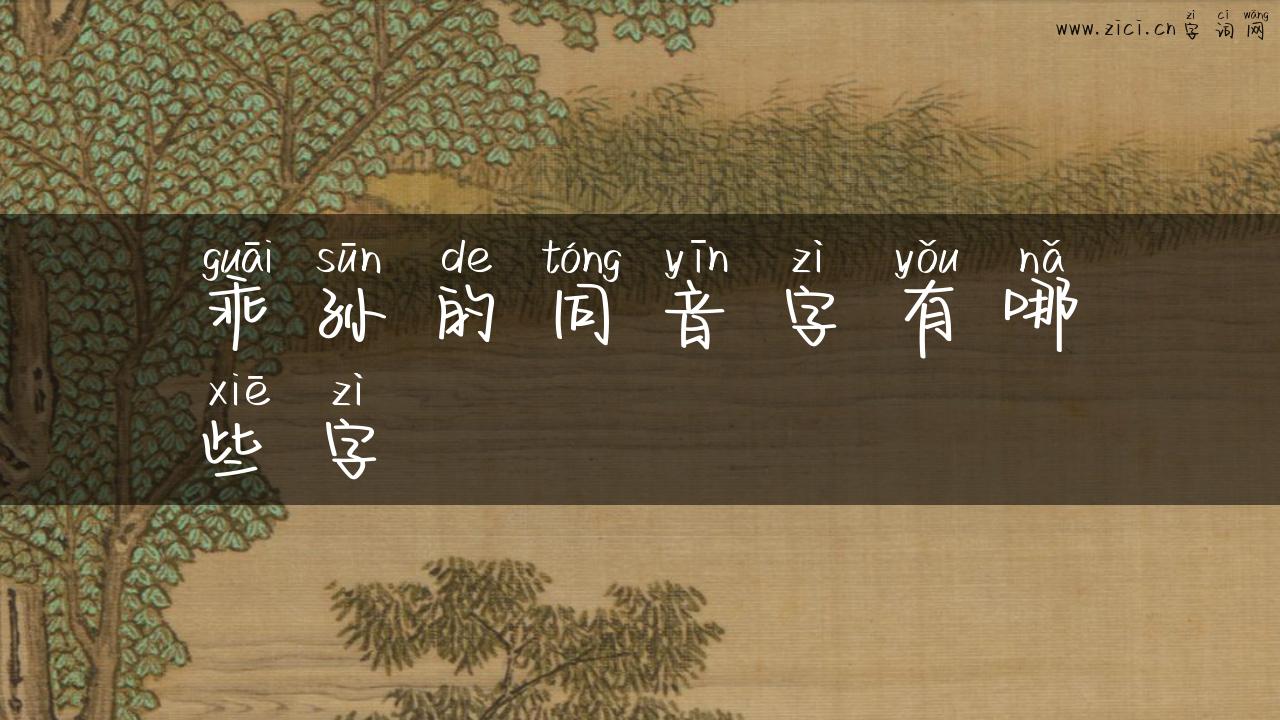 zì cí wǎng
www.zici.cn字词网
guāi sūn de tóng yīn zì yǒu nǎ
乖孙的同音字有哪
xiē zì
些字